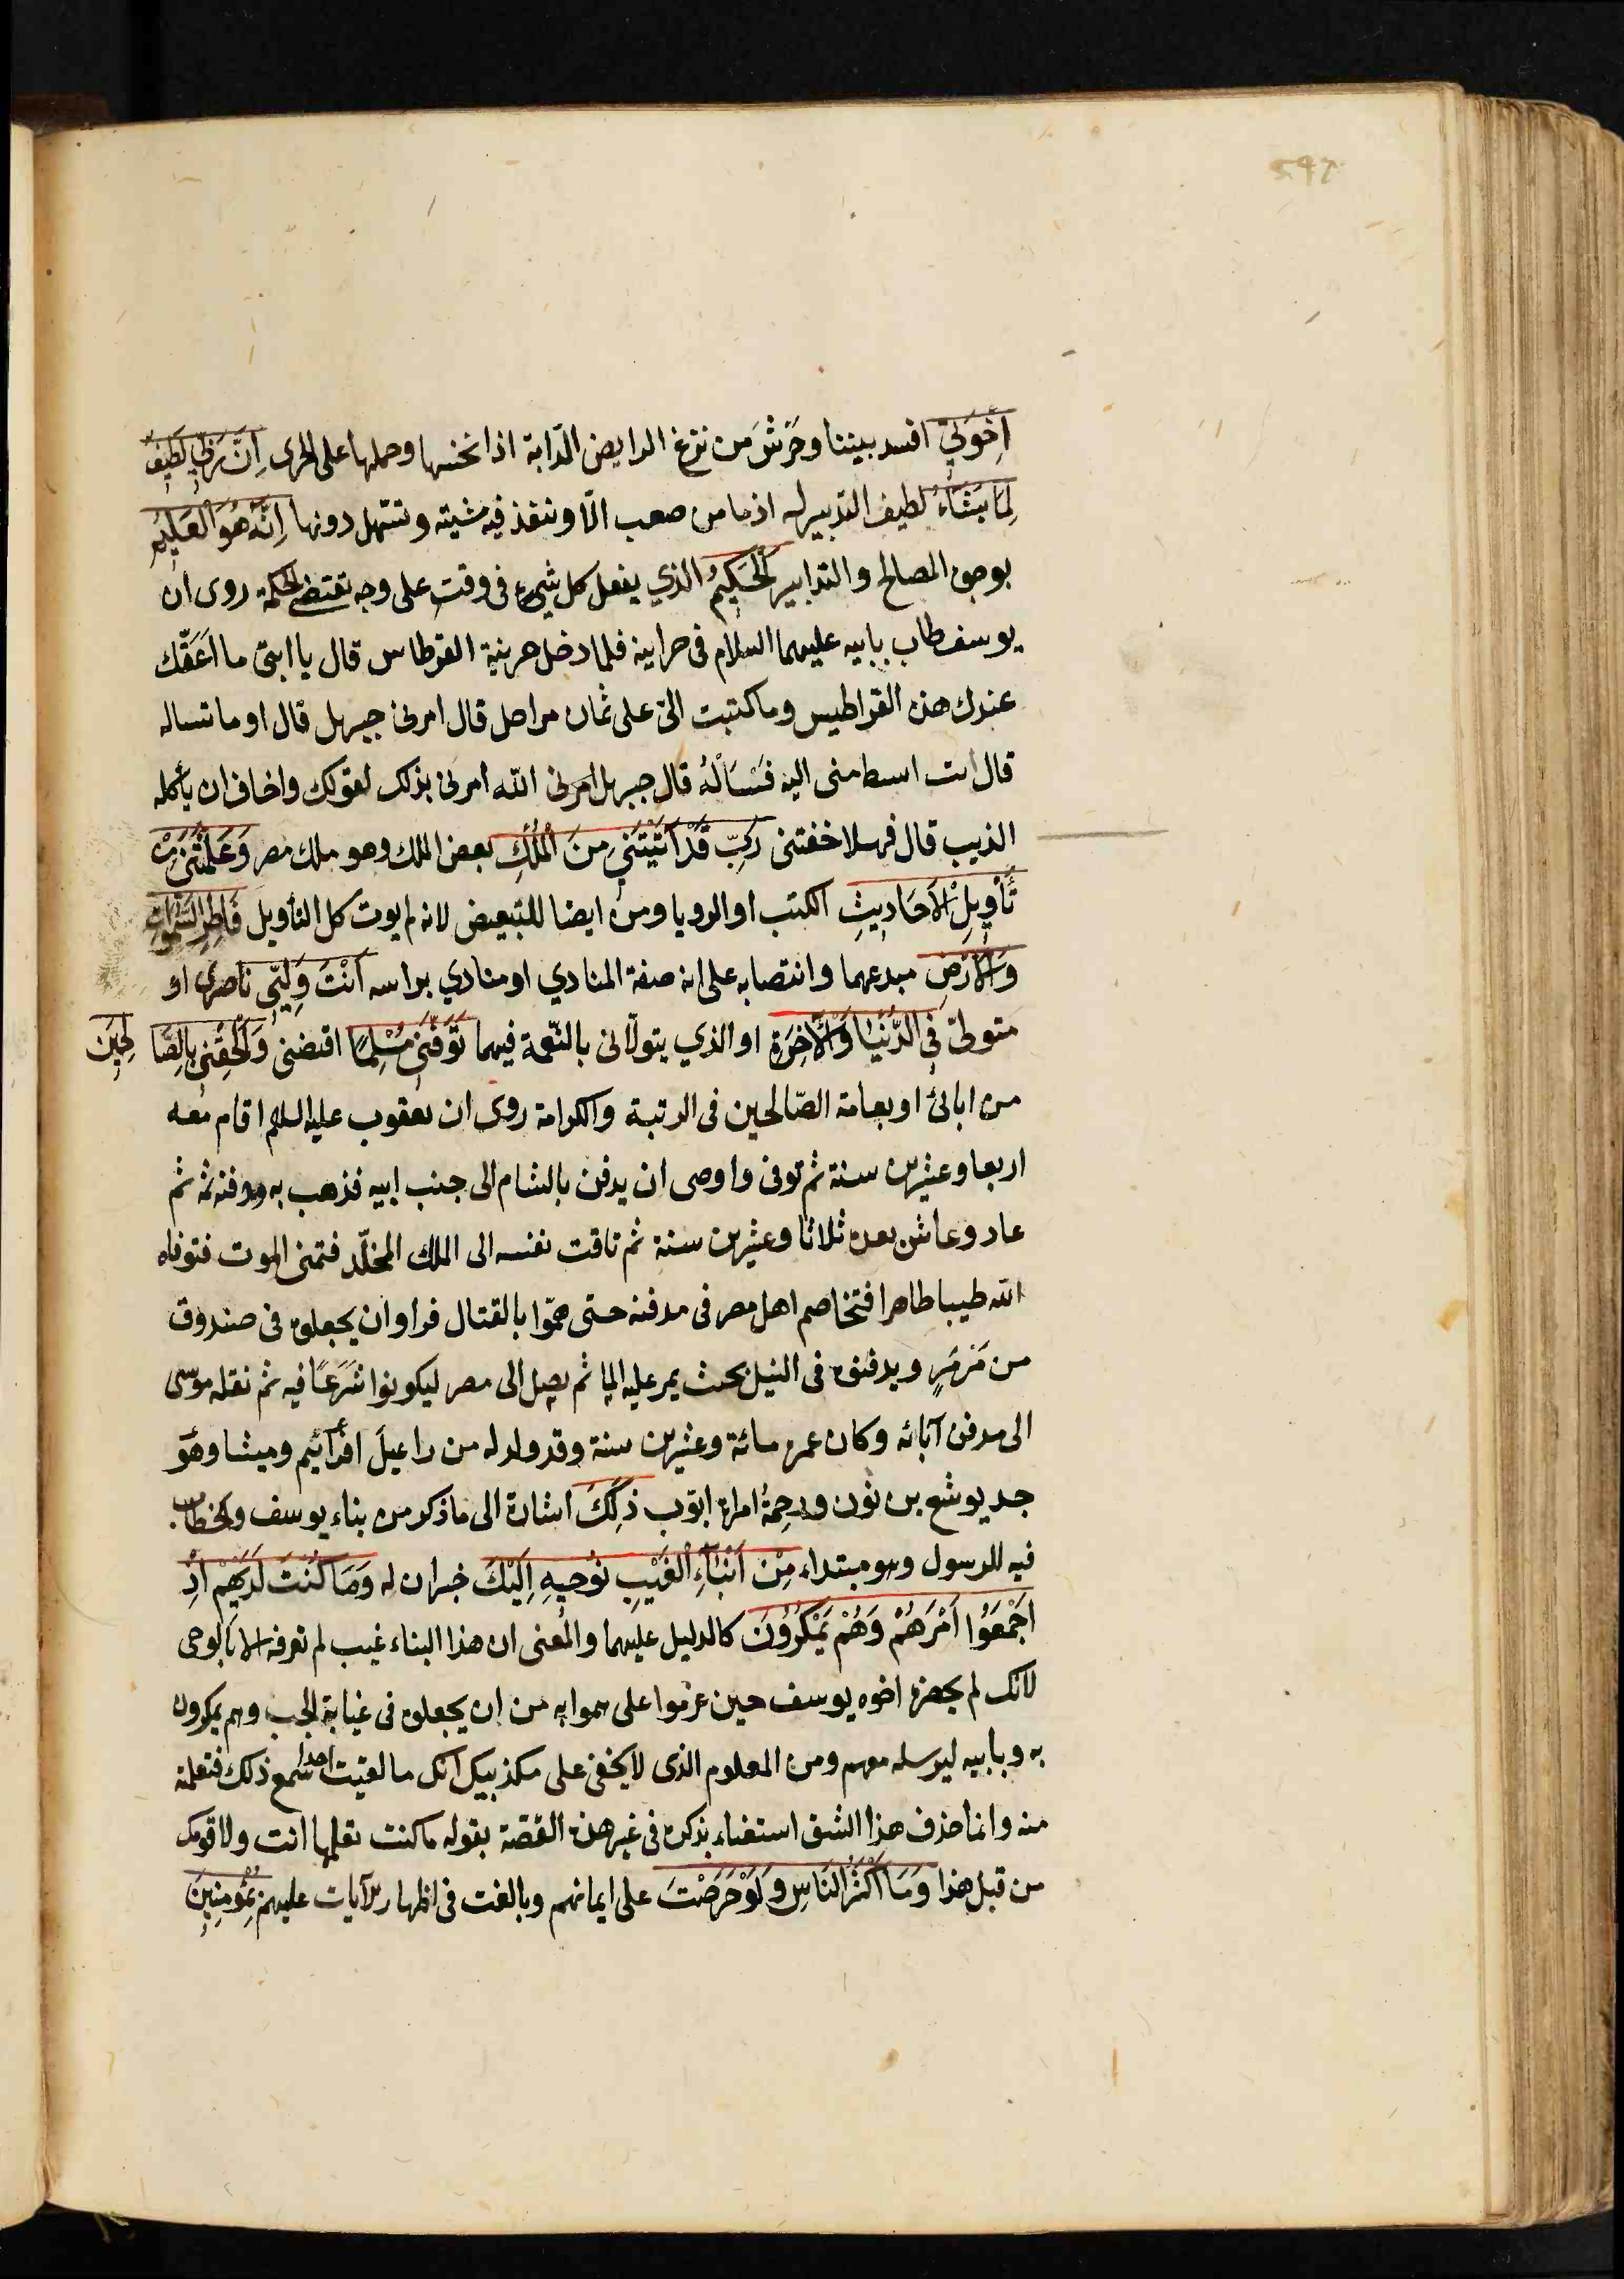 اِخْوَتِيۤ افسد بيننا وحَرَّشَ من نزغ الرايض الدّابة اذا نخسها وحملها على الجرى اِنَّ رَبِّي لَطِيفٌ
لِمَا يَشَاۤءُ لطيف التدبير له اذ ما من صعب الّا وتنفذ فيه مشيته وتتسهل دونها اِنَّهُ هُوَ الْعَلِيمُ
بوجوه المصالح والتدابير الْحَكِيمُ الذي يفعل كل شيء فى وقت على وجه تقتضى الحكمة روى ان
يوسف طاب بابيه عليهما السلام فى خزاينه فلما دخل خزينة القرطاس قال يا ابنى ما اَعَقَّك
عندك هذه القراطيس وما كتبت الىّ على ثمان مراحل قال امرنى جبريل قال او ما تساله
قال انت ابسط منى اليه فَسَأَلَهُ قال جبريل امرنى الله امرنى بذلك لقولك واخاف ان يأكله
الذيب قال فهلا خفتنى رَبِّ قَدْ اٰتَيْتَنِي مِنَ الْمُلْكِ بعض الملك وهو ملك مصر وَعَلَّمْتَنِي مِنْ
تَأْوِيلِ الْاَحَادِيثِ الكتب او الرويا ومن ايضا للتبعيض لانه لم يوت كل التأويل فَاطِرَ السَّمٰوَاتِ
وَالْاَرْضِ مبدعهما وانتصابه على انه صفة المنادي او منادي براسه اَنْتَ وَلِيِّي ناصرى او
متولىّ فِي الدُّنْيَا وَالْاٰخِرَةِ او الذي يتولّانى بالنّعمة فيهما تَوَفَّنِي مُسْلِمًا اقبضنى وَاَلْحِقْنِي بِالصَّالِحِينَ
من ابائى او بعامة الصّالحين فى الرتبة والكرامة روى ان يعقوب عليه السلم اقام معه
اربعا وعشرين سنة ثم توفى واوصى ان يدفن بالشام الى جنب ابيه فذهب به ودفنه ثمه ثم
عاد وعاش بعده ثلاثا وعشرين سنة ثم تاقت نفسه الى الملك المخلّد فتمنى الموت فتوفاه
الله طيبا طاهرا فتخاصم اهل مصر فى مدفنه حتى همّوا بالقتال فراوا ان يجعلوه فى صندوق
من مَرْمَرٍ ويدفنوه فى النيل بحيث يمر عليه الما ثم يصل الى مصر ليكونوا شَرَعًا فيه ثم نقله موسى
الى مدفن آبائه وكان عمره مائة وعشرين سنة وقد ولد له من راعيل افرآئيم وميشا وهو
جد يوشع بن نون ورحمةُ امراة ايوب ذٰلِكَ اشارة الى ما ذكر من بناء يوسف والخطاب
فيه للرسول وهو مبتداء مِنْ اَنْبَاۤءِ الْغَيْبِ نُوحِيهِ اِلَيْكَ خبران له وَمَا كُنْتَ لَدَيْهِمْ اِذْ
اَجْمَعُوۤا اَمْرَهُمْ وَهُمْ يَمْكُرُونَ كالدليل عليهما والمعنى ان هذا البناء غيب لم تعرفه الا بالوحى
لانك لم يحضره اخوه يوسف حين عزموا على هموا به من ان يجعلوه فى غيابة الجب وهم يمكرون
به وبابيه ليرسله معهم ومن المعلوم الذى لا يخفى على مكذبيك انك ما لقيت احدا سمع ذلك فتعلمته
منه وانما حذف هذا الشق استغناء بذكره فى غير هذه القصة بقوله ما كنت تعلمها انت ولا قومك
من قبل هذا وَمَاۤ اَكْثَرُ النَّاسِ وَلَوْ حَرَصْتَ على ايمانهم وبالغت فى اظهار الآيات عليهم بِمُؤْمِنِينَ